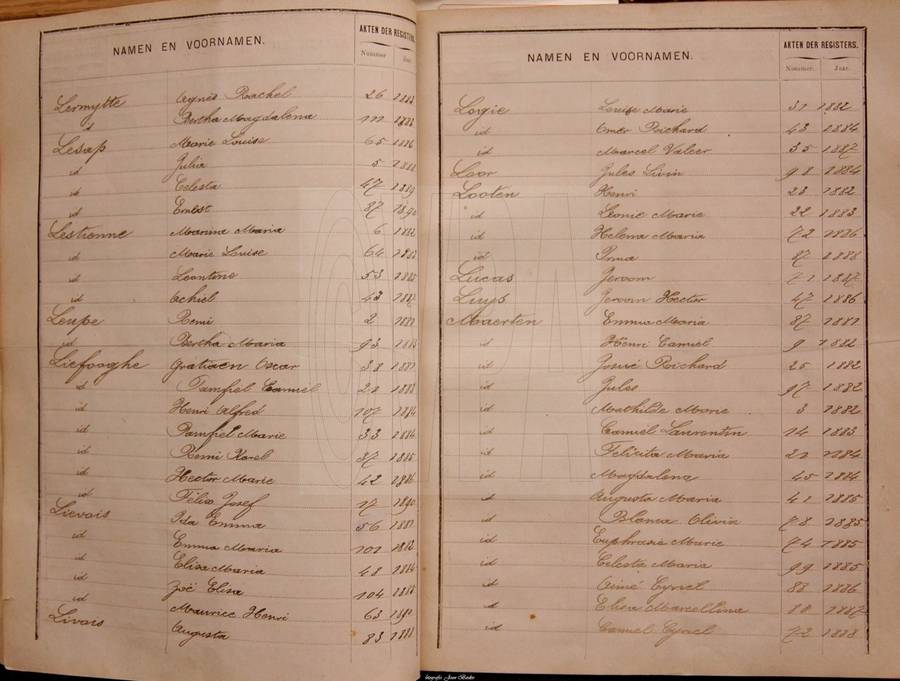 NAMEN EN VOORNAMEN. AKTEN DER REGISTERS.
Nummer Jaar.
Lermytte Agnès Rachel 26 1883
id Bertha Magdalena 111 1888
Lesap Marie Louise 65 1886
id Julia 5 1888
id Celesta 47 1889
id Ernest 87 1890
Lestienne Marina Maria 6 1882
id Marie Louise 64 1883
id Leontine 53 1885
id Achiel 43 1887
Leupe Remi 2 1881
id Bertha Maria 93 1886
Liefooghe Gratiaen Oscar 38 1881
id Pamfiel Camiel 21 1883
id Henri Alfred 107 1884
id Pamfiel Marie 33 1886
id Remi Karel 37 1886
id Hector Marie 42 1886
id Félix Josef 17 1890
Lievois Ida Emma 56 1881
id Emma Maria 101 1882
id Elisa Maria 48 1884
id Zoë Elisa 104 1888
id Maurice Henri 63 1890
Livois Augusta 83 1888
NAMEN EN VOORNAMEN. AKTEN DER REGISTERS.
Nummer. Jaar.
Logie Louise Marie 31 1882
id Omer Richard 43 1884
id Marcel Valeer 35 1887
Loor Jules Livin 98 1884
Looten Henri 23 1882
id Leonie Marie 22 1883
id Helena Maria 72 1886
id Irma 87 1888
Lucas Jeroom 71 1887
Luys Jeroom Hector 47 1886
Maerten Emma Maria 87 1881
id Henri Camiel 9 1882
id Josué Richard 25 1882
id Jules 97 1882
id Mathilde Marie 3 1882
id Camiel Laurentin 14 1883
id Felicita Maria 21 1884
id Magdalena 45 1884
id Augusta Maria 41 1885
id Blanca Olivia 78 1885
id Euphrasie Marie 74 1885
id Celesta Maria 99 1885
id Aimé Cyriel 88 1886
id Elisa Marcellina 80 1887
id Camiel Cyriel 72 1888